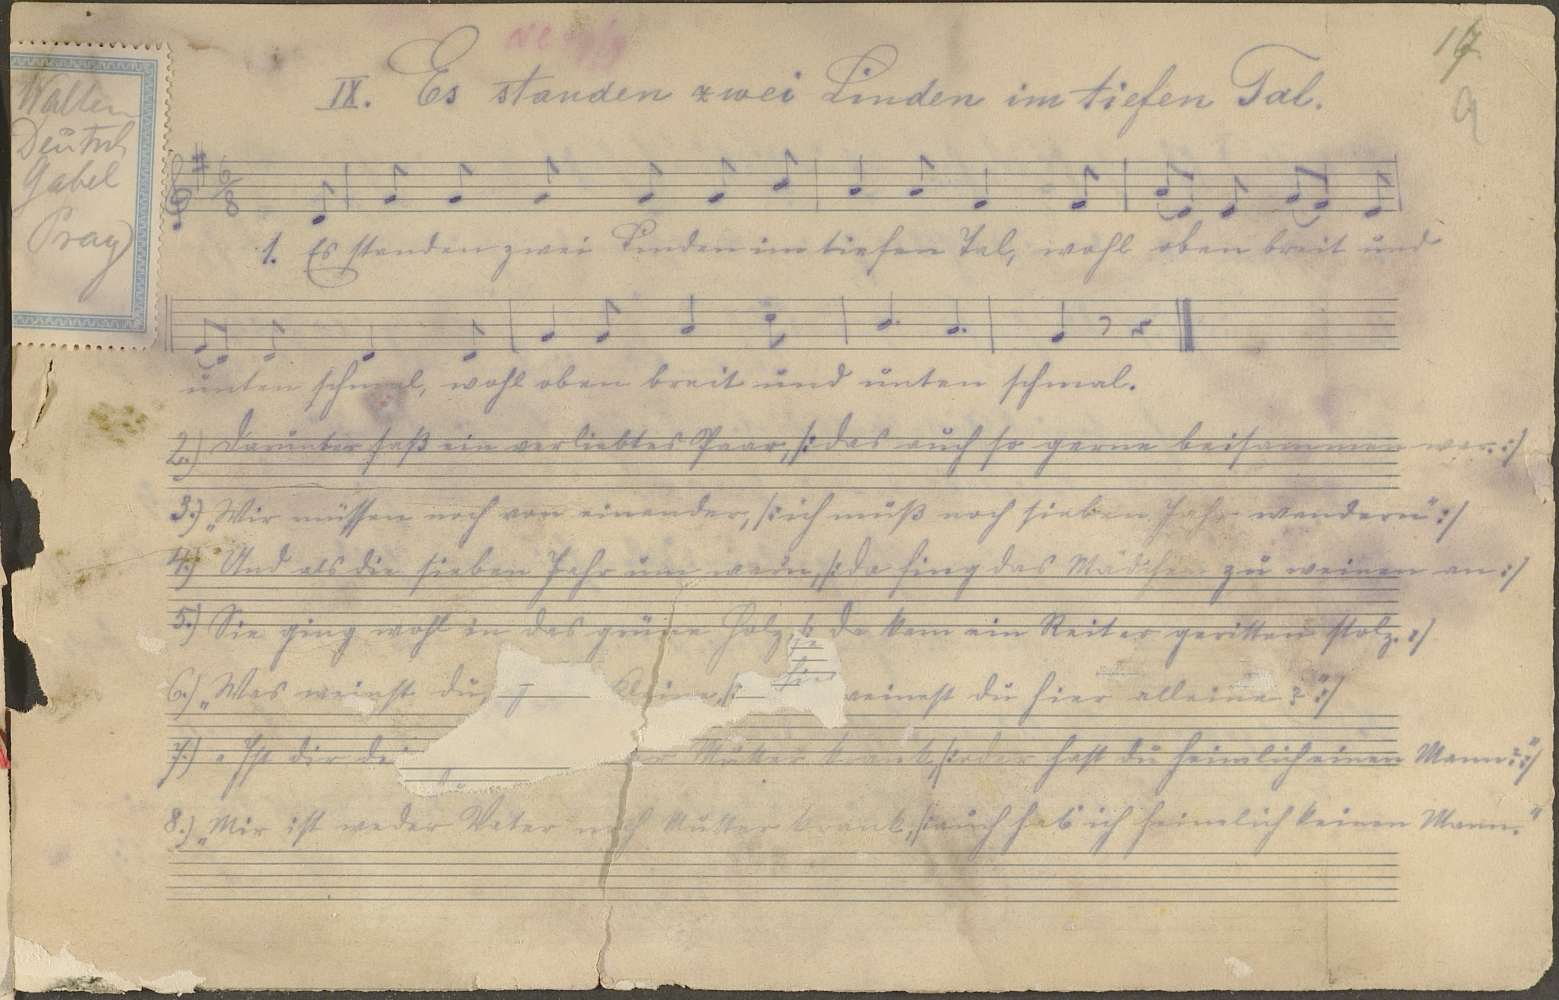 17
9
IX. Es standen zwei Linden im tiefen Tal.
Walter
Deutsch
Gabel
Prag
6/8
1. Es standen zwei Linden im tiefen Tal, wohl oben breit und
unten schmal, wohl oben breit und unten schmal.
2.) Darunter saß ein verliebtes Paar, /: das auch so gerne beisammen war. :/
3.) „Wir müssen noch von einander, /: ich muß noch sieben Jahr wandern“ :/
4.) Und als die sieben Jahr um warn, /: da fing das Mädchen zu weinen an :/
5.) Sie ging wohl in das grüne Holz, /: da kam ein Reiter geritten stolz. :/
6.) „Was weinst du, kleine, /: weinest du hier alleine? “:/
7.) „Ist dir dei Mutter krank, /: oder hast du heimlich einen Mann? “:/
8.) „Mir ist weder Vater noch Mutter krank, /: auch hab ich heimlich keinen Mann.“